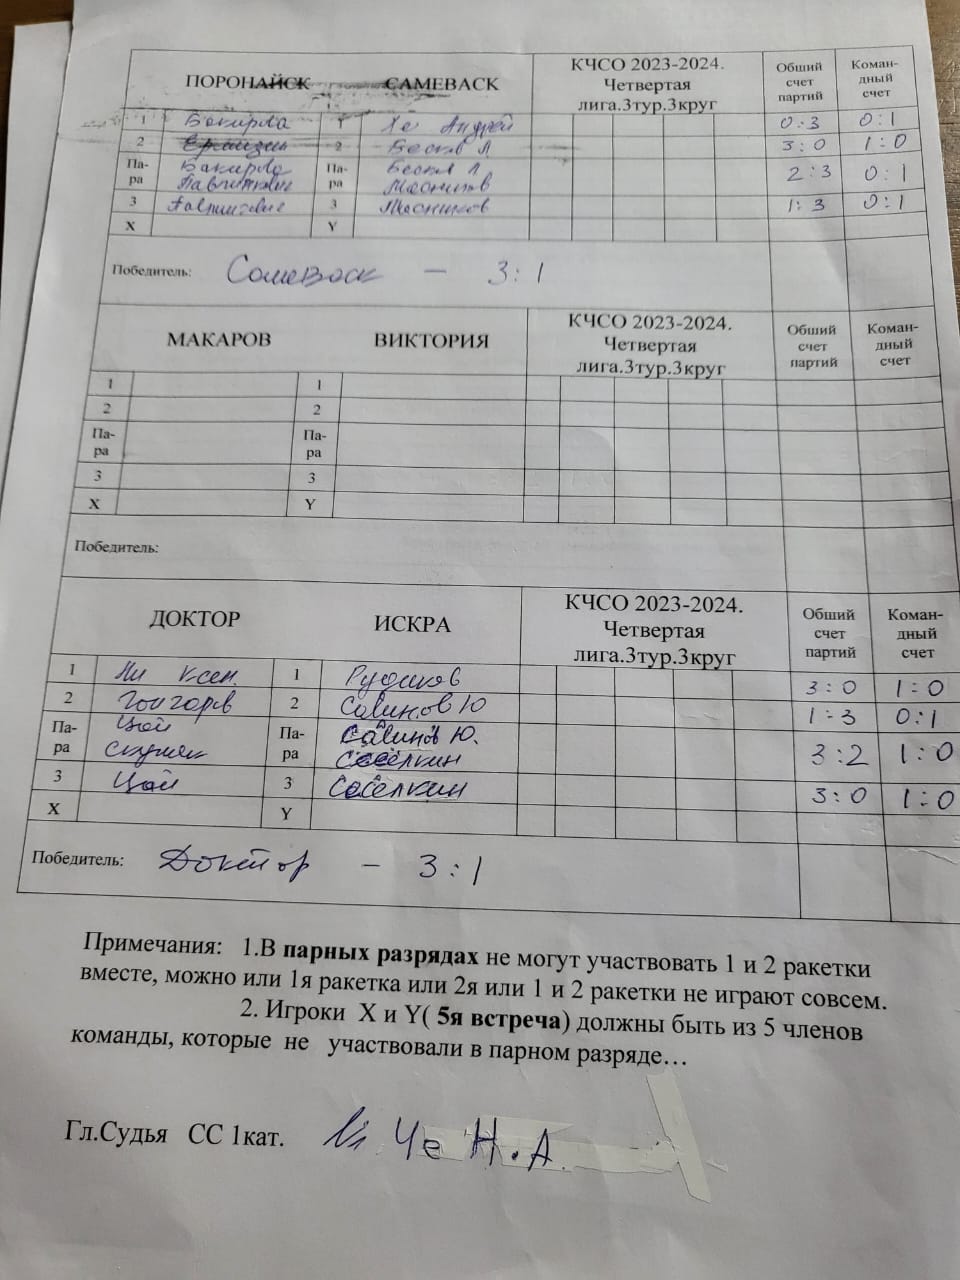 ПОРОНАЙСК САМЕВАСК КЧСО 2023-2024. Четвертая лига.3тур.3круг Общий счет партий Коман-дный счет
1 Бакирова 1 Хе Андрей 0:3 0:1
2 2 Бесков Л 3:0 1:0
Па-ра Бакирова Па-ра Бесков Л 2:3 0:1
3 3 1:3 0:1
X Y
Победитель: Самеваск - 3:1
МАКАРОВ ВИКТОРИЯ КЧСО 2023-2024. Четвертая лига.3тур.3круг Общий счет партий Коман-дный счет
1 1
2 2
Па-ра Па-ра
3 3
X Y
Победитель:
ДОКТОР ИСКРА КЧСО 2023-2024. Четвертая лига.3тур.3круг Общий счет партий Коман-дный счет
1 Ли Ксен. 1 Рудаков 3:0 1:0
2 2 Савинов Ю 1-3 0:1
Па-ра Цой Па-ра Савинов Ю. 3:2 1:0
Соселкин
3 Цой 3 Соселкин 3:0 1:0
X Y
Победитель: Доктор - 3:1
Примечания: 1.В парных разрядах не могут участвовать 1 и 2 ракетки
вместе, можно или 1я ракетка или 2я или 1 и 2 ракетки не играют совсем.
2. Игроки X и Y( 5я встреча) должны быть из 5 членов
команды, которые не участвовали в парном разряде…
Гл.Судья СС 1кат. Че Н.А.